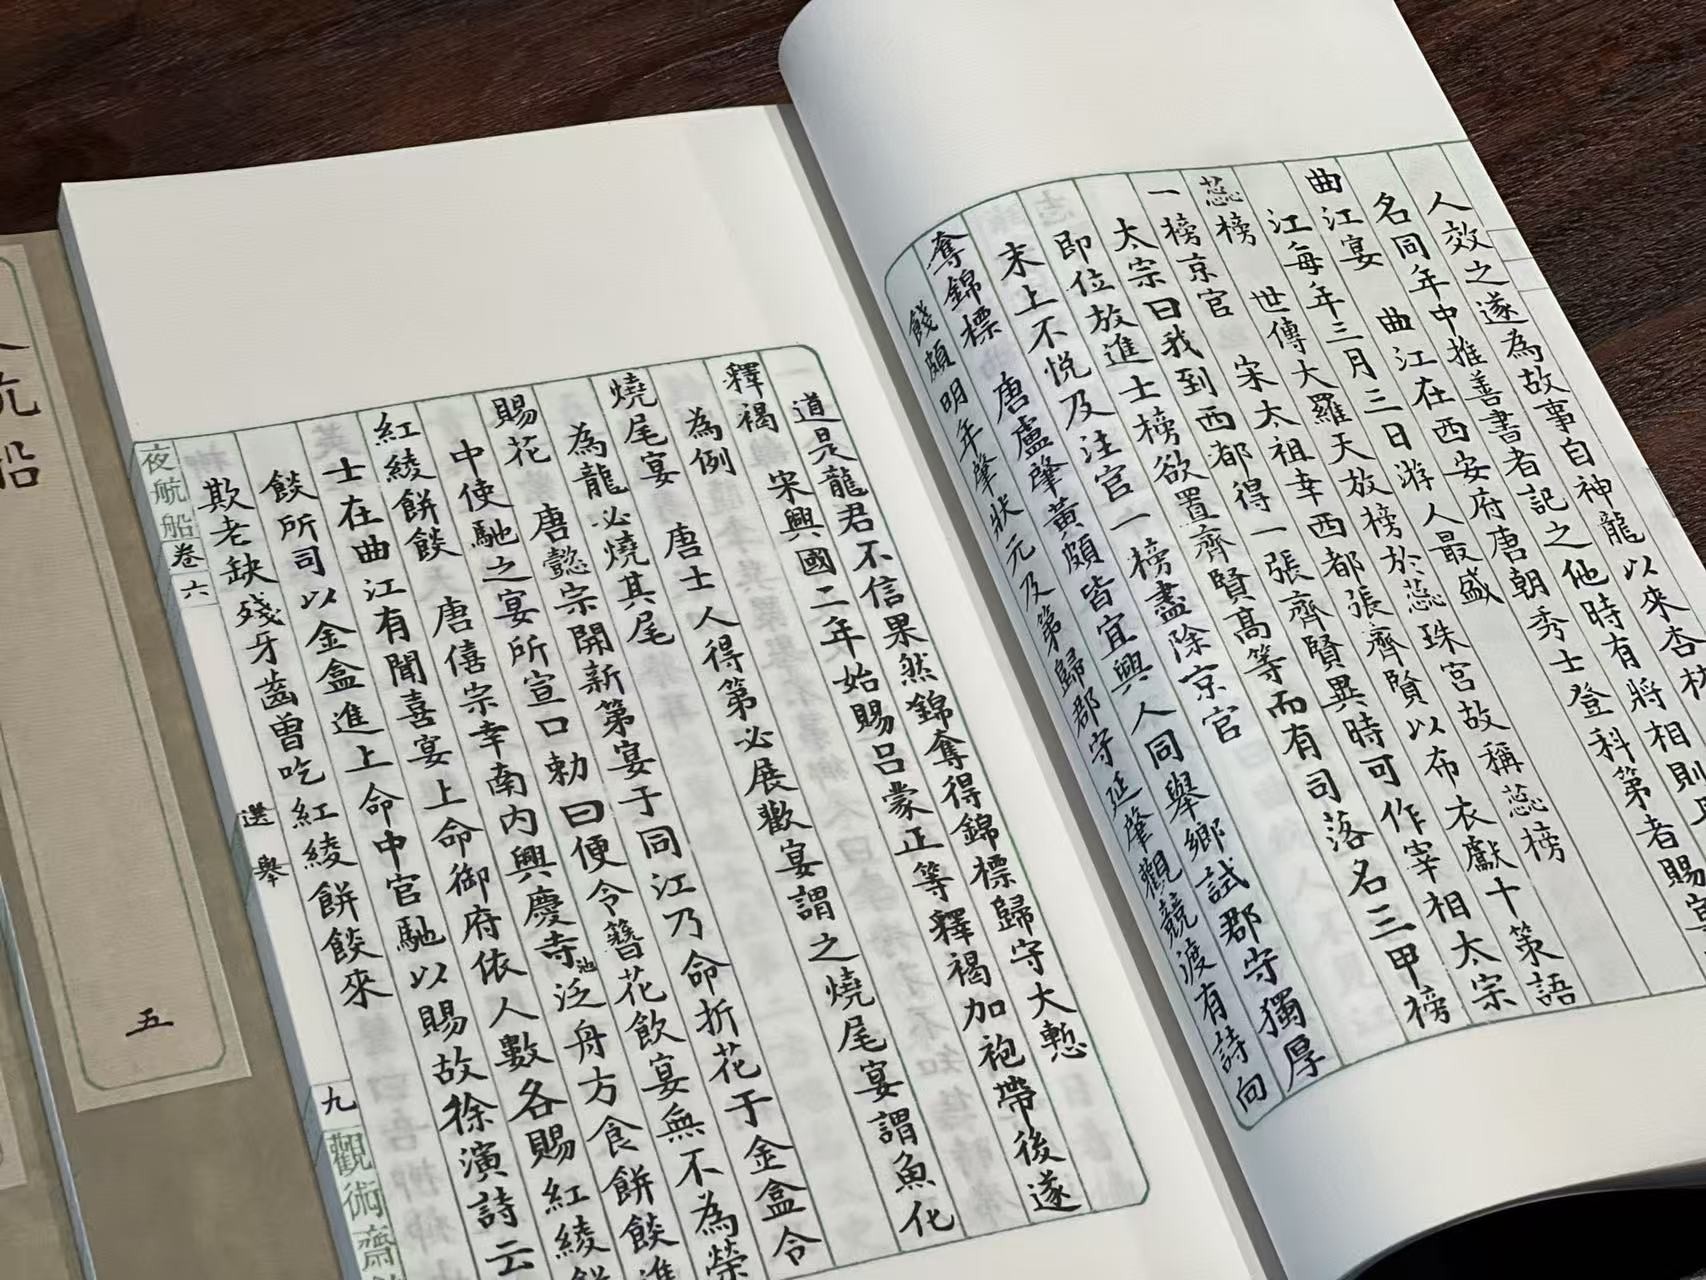 人效之遂為故事自神龍以來杏
名同年中推善書者記之他時有將相則
曲江宴 曲江在西安府唐朝秀士登科第者賜宴
江每年三月三日游人最盛
蕊榜 世傳大羅天放榜於蕊珠宮故稱蕊榜
一榜京官 宋太祖幸西都張齊賢以布衣獻十策語
太宗曰我到西都得一張齊賢異時可作宰相太宗
即位放進士榜欲置齊賢高等而有司落名三甲榜
末上不悅及注官一榜盡除京官
奪錦標 唐盧肇黃頗皆宜興人同舉鄉試郡守獨厚
餞頗明年肇狀元及第歸郡守延肇觀競渡有詩向
道是龍君不信果然錦奪得錦標歸守大慙
釋褐 宋興國二年始賜呂蒙正等釋褐加袍帶後遂
為例
燒尾宴 唐士人得第必展歡宴謂之燒尾宴謂魚化
為龍必燒其尾
賜花 唐懿宗開新第宴于同江乃命折花于金盒令
中使馳之宴所宣口勅曰便令簪花飲宴無不為榮
紅綾餅餤 唐僖宗幸南內興慶寺池泛舟方食餅餤進
士在曲江有聞喜宴上命御府依人數各賜紅綾餅
餤所司以金盒進上命中官馳以賜故徐演詩云
欺老缺殘牙齒曾吃紅綾餅餤來
夜航船 卷六 選舉 九 觀術齋
航船 五